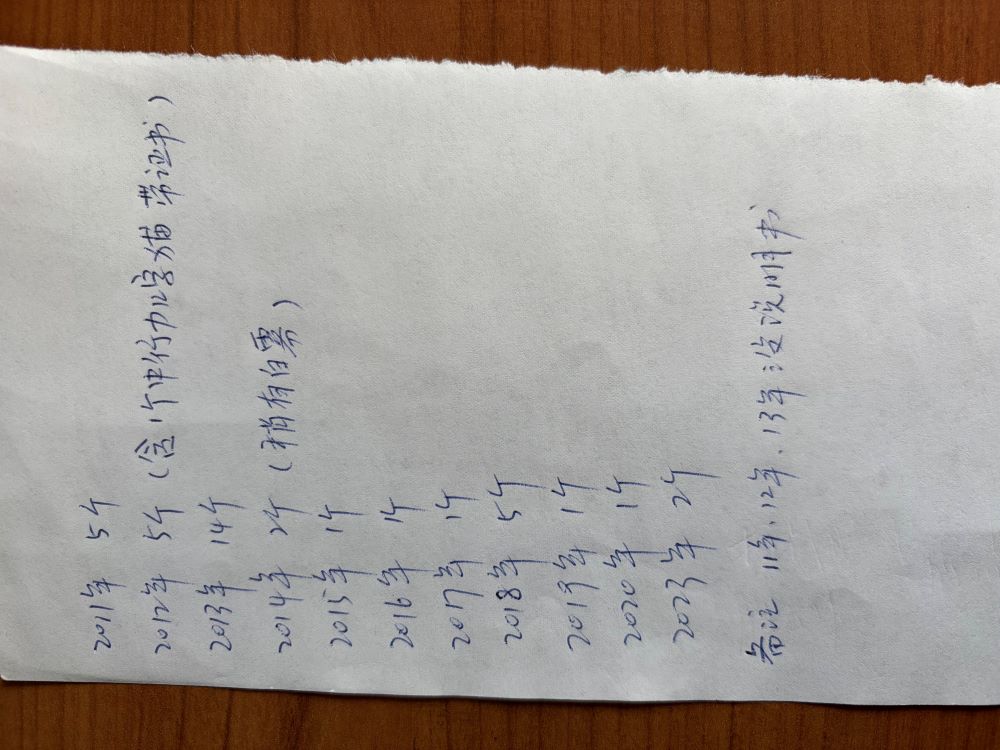 2011年 5个
2012年 5个（含1个中行加字猫 带证书）
2013年 14个
2014年 2个（稍有白雾）
2015年 1个
2016年 1个
2017年 1个
2018年 5个
2019年 1个
2020年 1个
2023年 2个
备注 11年、12年、13年没说明书